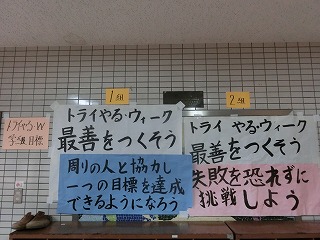 トライやる・W
学級目標
1組
トライやる・ウィーク
最善をつくそう
周りの人と協力し
一つの目標を達成
できるようになろう
2組
トライやる・ウィーク
最善をつくそう
失敗を恐れずに
挑戦しよう